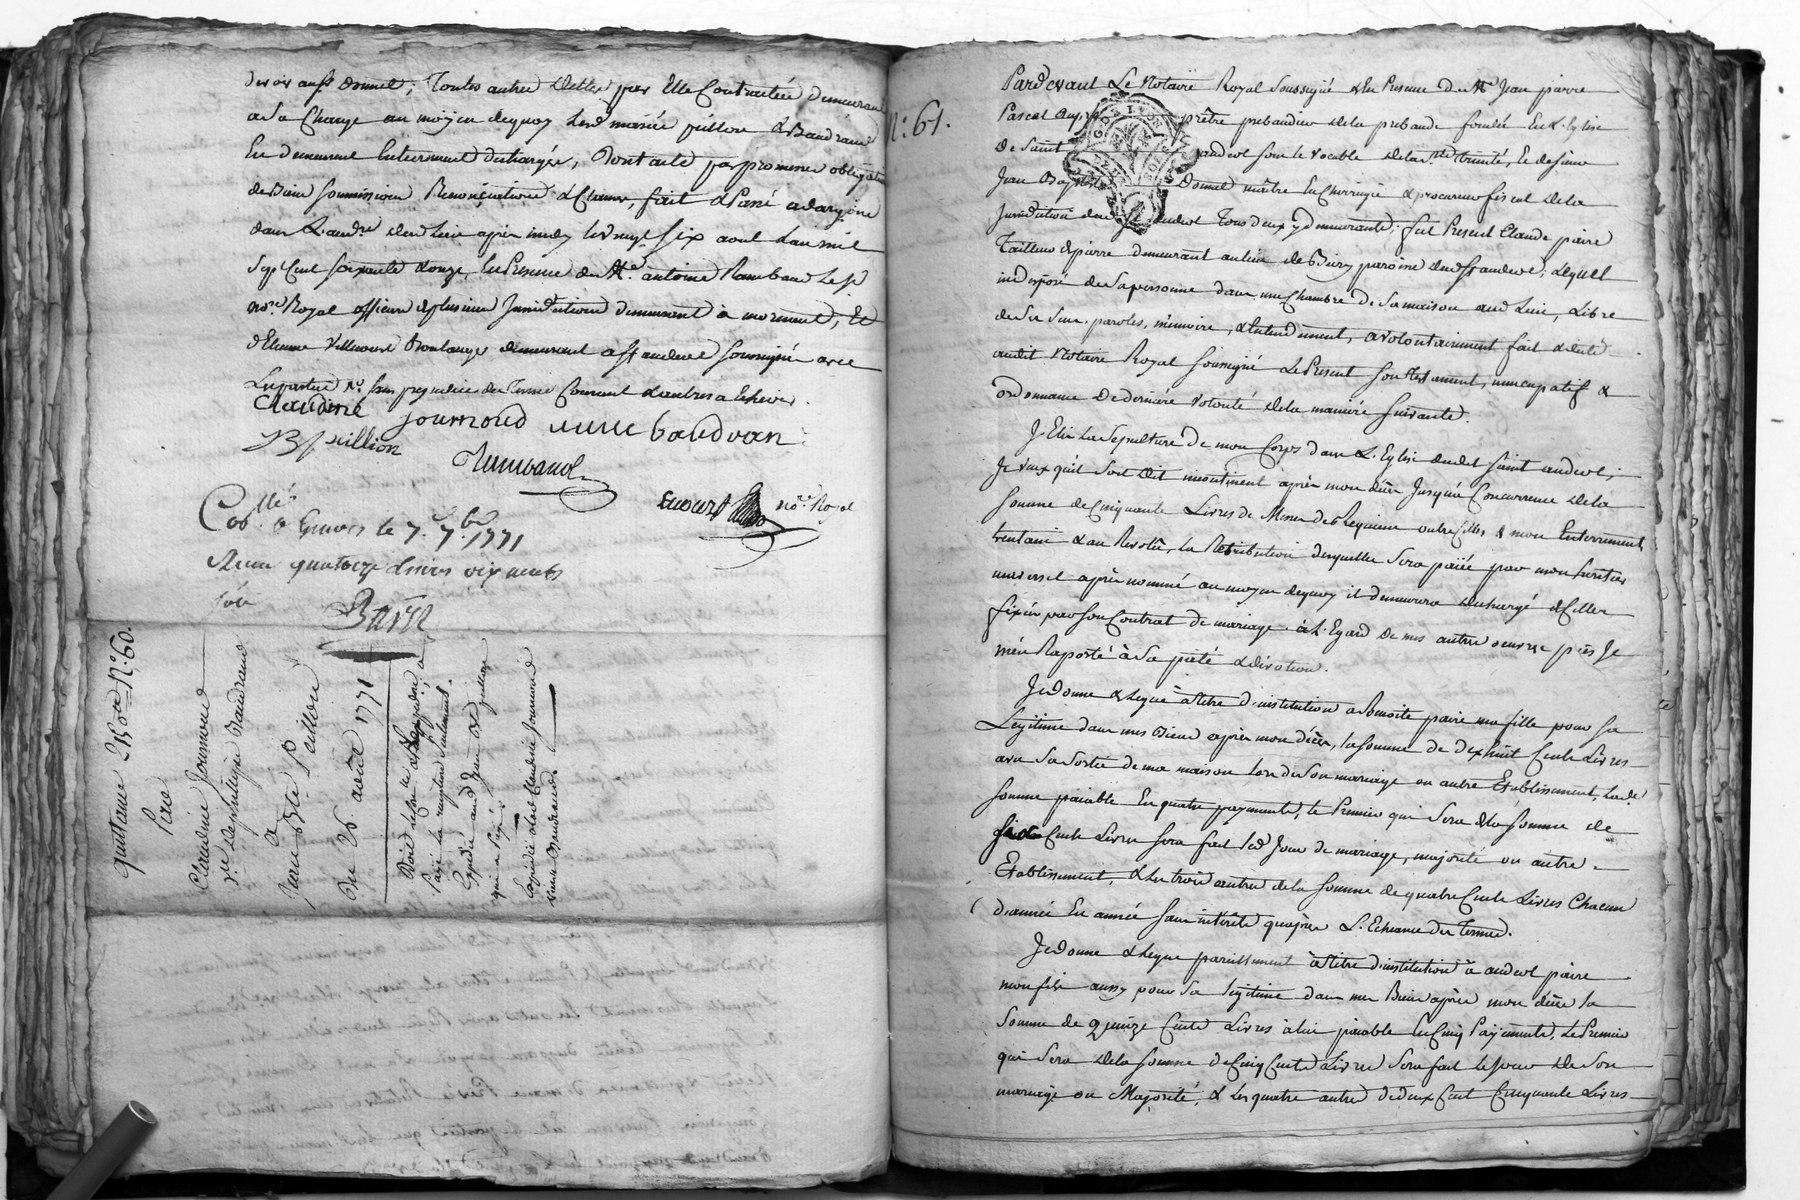 devoir aussi donnel, Toutes autres dettes par Elle Contractées demeurant
a Sa Charge au moyen dequoy lesd mariés peillon & Baudrand
En demeurent Entierement dechargés, Dont acte pas promesses obligations
de Biens soummissions Renonciations & Clauses, fait & Passé adargoire
dans L. aud.re dudu lieu après midy le vingt six aout L'an mil
Sept Cent soixante & onze, En Presence de M.e antoine Rambaud le je
no.re Royal officier de plusieurs Jurisdictions demeurant à mornant, Et
d'Etienne Villecourt Boulanger demeurant a St andeol Soussignés avec
Les parties n.r sans prejudice du Terme Courant & autres a Echeoir.
Claudine journoud veuve baudran
B peillion
Rambaud
no.re Royal
Con.llé à Givors le 7.e 7.bre 1771
Recu quatorze Livres dix neuf
sols
Barge
quittance 215.# N.o 60.
Par
Claudine Journoud
v.e de philippe Baudrand
a
Jean B.te Peillon
Du 26. aout 1771
Expedié aud Jean B.te peillon
qui a Payé
Expedié alad Claudine Journoud
veuve Baudrand
N.o 61.
Pardevant Le Notaire Royal Soussigné & En Presence de M.re Jean pierre
Pascal prêtre prebandier dela prebande fondée En L. Eglise
de Saint andeol sous le vocable dela S.te trinité, & de sieur
Jean Baptiste Donnel maitre En Chirurgie & procureur fiscal dela
Jurisdiction dud St andeol Tous deux y demeurants; fut Present Claude paire
Tailleur de pierre demeurant au lieu de Bury paroisse dud St andeol; Lequel
indisposé de Sa personne dans une Chambre de Sa maison aud Lieu, Libre
de Ses Sens, paroles, mémoire, & Entendement, a volontairement fait & dicté
audit Notaire Royal soussigné Le Present Son testament, nuncupatif &
ordonnance de derniere volonté de la maniére suivante.
J. Elis La Sepulture de mon Corps dans L. Eglise dudit saint andeol;
Je veux qu'il soit dit incontinent après mon décès Jusqu'à Concurrence dela
somme de Cinquante Livres de Messes de Requiem outre Celles de mon Enterrement
trentain & au Revolu, La Retribution desquelles Sera païée par mon heritier
universel après nommé au moyen dequoy il demeurera dechargé de Celles
fixées par Son Contrat de mariage. à L. Egard de mes autres oeuvres pies Je
m'en Raporté à Sa pieté & devotion.
Je donne & Legue à titre d'institution a Benoite paire ma fille pour Sa
Legitime dans mes Biens après mon décès, la somme de dix huit Cents Livres
ava Sa Sortie de ma maison lors de Son mariage ou autre Etablissement, lad.e
somme païable En quatre payements, le Premier qui Sera de la somme de
Six Cents Livres sera fait led Jour de mariage, majorité ou autre
Etablissement, & Les trois autres de la somme de quatre Cents Livres Chacun
d'année En année sans intérêts qu'après L. Echeance des Termes.
Je donne & Legue pareillement à titre d'institution à andeol paire
mon fils aussy pour Sa legitime dans mes Biens après mon décès la
Somme de Quinze Cents Livres à lui païable En Cinq Payements, Le Premier
qui Sera de la somme de Cinq Cents Livres Sera fait le jour de Son
mariage ou Majorité, & Les quatre autres de deux Cent Cinquante Livres